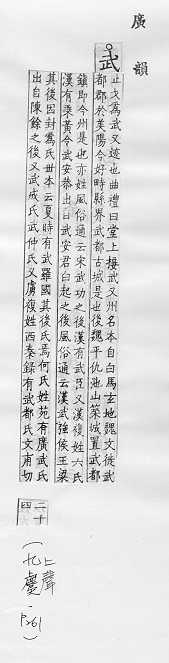 廣韻
武
止戈為武又迹也曲禮曰堂上接武又州名本自白馬氐地魏文徙武
都郡於美陽今好畤縣界武都古城是也後魏平仇池山築城置武都
鎮即今州是也亦姓風俗通云宋武功之後漢有武臣又漢複姓六氏
漢有乗黃令武安恭出自武安君白起之後風俗通云漢武強侯王梁
其後因封爲氏世本云夏時有武羅國其後氏焉何氏姓苑有廣武氏
出自陳餘之後又武成氏武仲氏又虜複姓西秦錄有武都氏文甫切
二十
四
(上聲
九麌·P261)